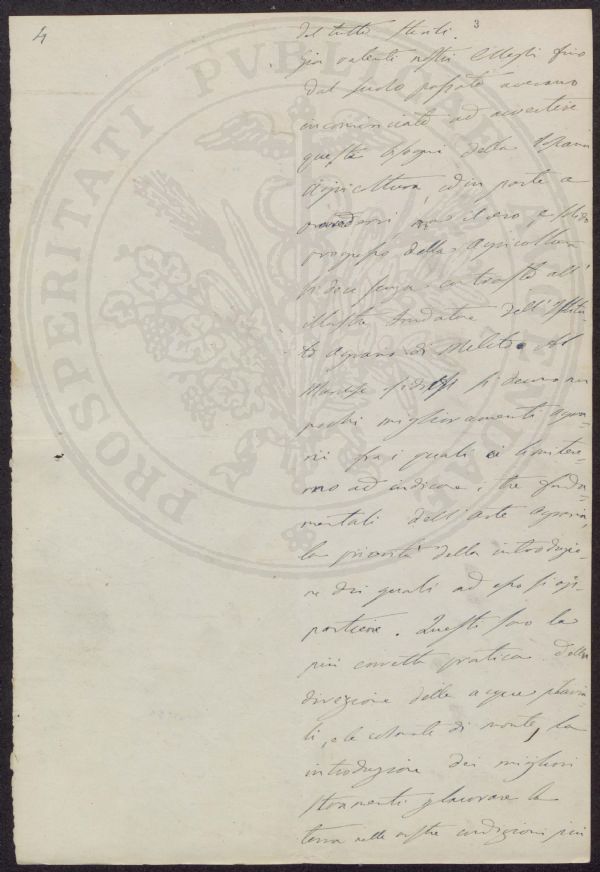 4
3
del tutto sterili.
Già valenti nostri Colleghi fino
dal secolo passato avevano
incominciato ad avvertire
questi bisogni della Toscana
Agricoltura, ed in parte a
ma il vero e solido
progresso della Agricoltura
si deve senza contrasto all'
illustre fondatore dell'Istitu-
to Agrario di Meleto. Al
Marchese Ridolfi si devono non
pochi miglioramenti agra-
rii fra i quali ci limitere-
mo ad indicare, tre fonda-
mentali dell'Arte Agraria,
la priorità della introduzio-
ne dei quali ad esso si ap-
partiene. Questi sono la
più corretta pratica della
direzione delle acque pluvia-
li, e le colmate di monte, la
introduzione dei migliori
strumenti per lavorare la
terra nelle nostre condizioni più
PROSPERITATI PVBLICAE